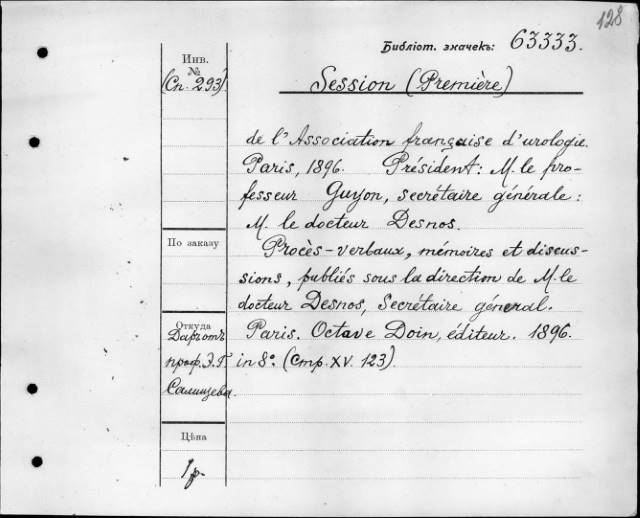 128
Библіот. значекъ: 63333.
Инв.
№
(Сп. 293)
Session (Première)
de l'Association française d'urologie.
Paris, 1896. Président: M. le pro-
fesseur Guyon, secrétaire générale:
M. le docteur Desnos.
По заказу
Procès-verbaux, mémoires et discus-
sions, publiés sous la direction de M. le
docteur Desnos, Secrétaire général.
Paris. Octave Doin, éditeur. 1896.
in 8º. (Стр. XV. 123).
Откуда
Даръ отъ
проф. Э.Г.
Салищева.
Цѣна
1 р.